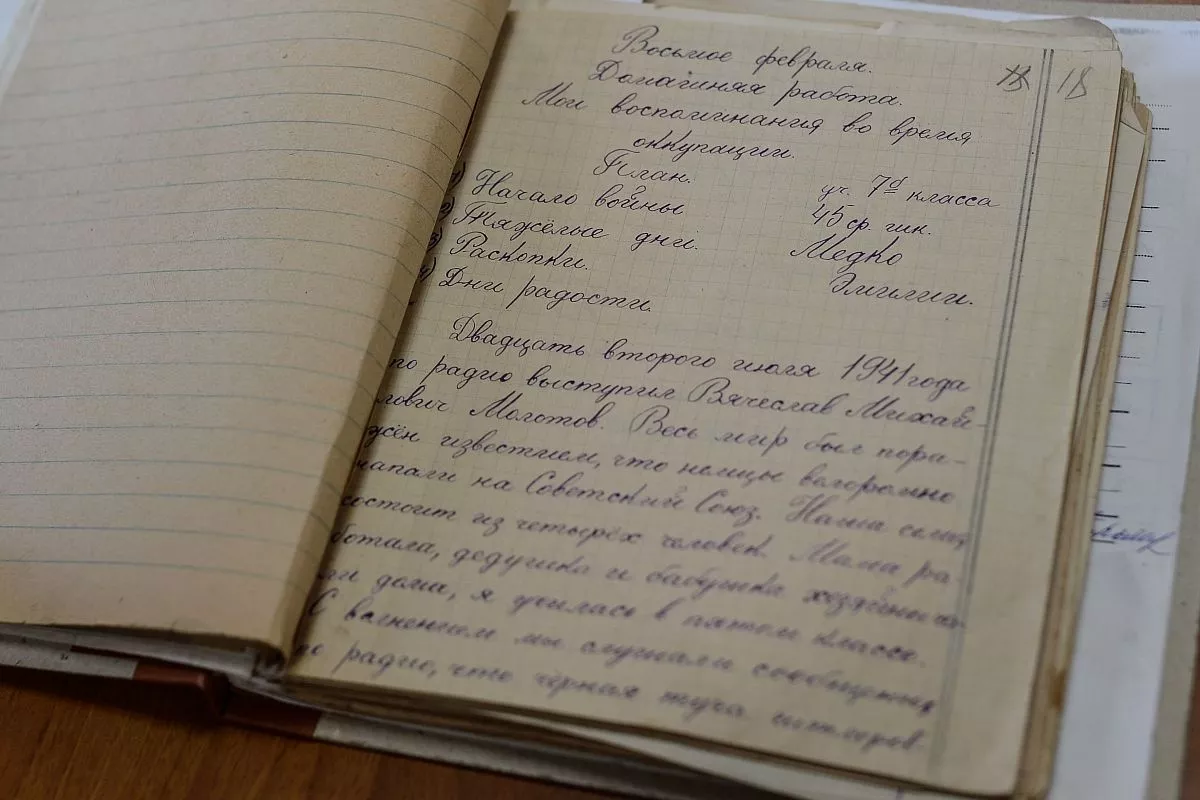 Восьмое февраля.
13 18
Домашняя работа.
Мои воспоминания во время
оккупации.
План.
уч. 7а класса
1) Начало войны
45 ср. гин.
2) Тяжёлые дни.
Медко
3) Раскопки.
Эмилии.
4) Дни радости.
Двадцать второго июля 1941 года
по радио выступил Вячеслав Михай-
лович Молотов. Весь мир был пора-
жён известием, что немцы вероломно
напали на Советский Союз. Наша семья
состоит из четырёх человек. Мама ра-
ботала, дедушка и бабушка
ли дома, я училась в пятом классе.
С волнением мы слушали сообщения
по радио, что чёрная туча гитлеров-